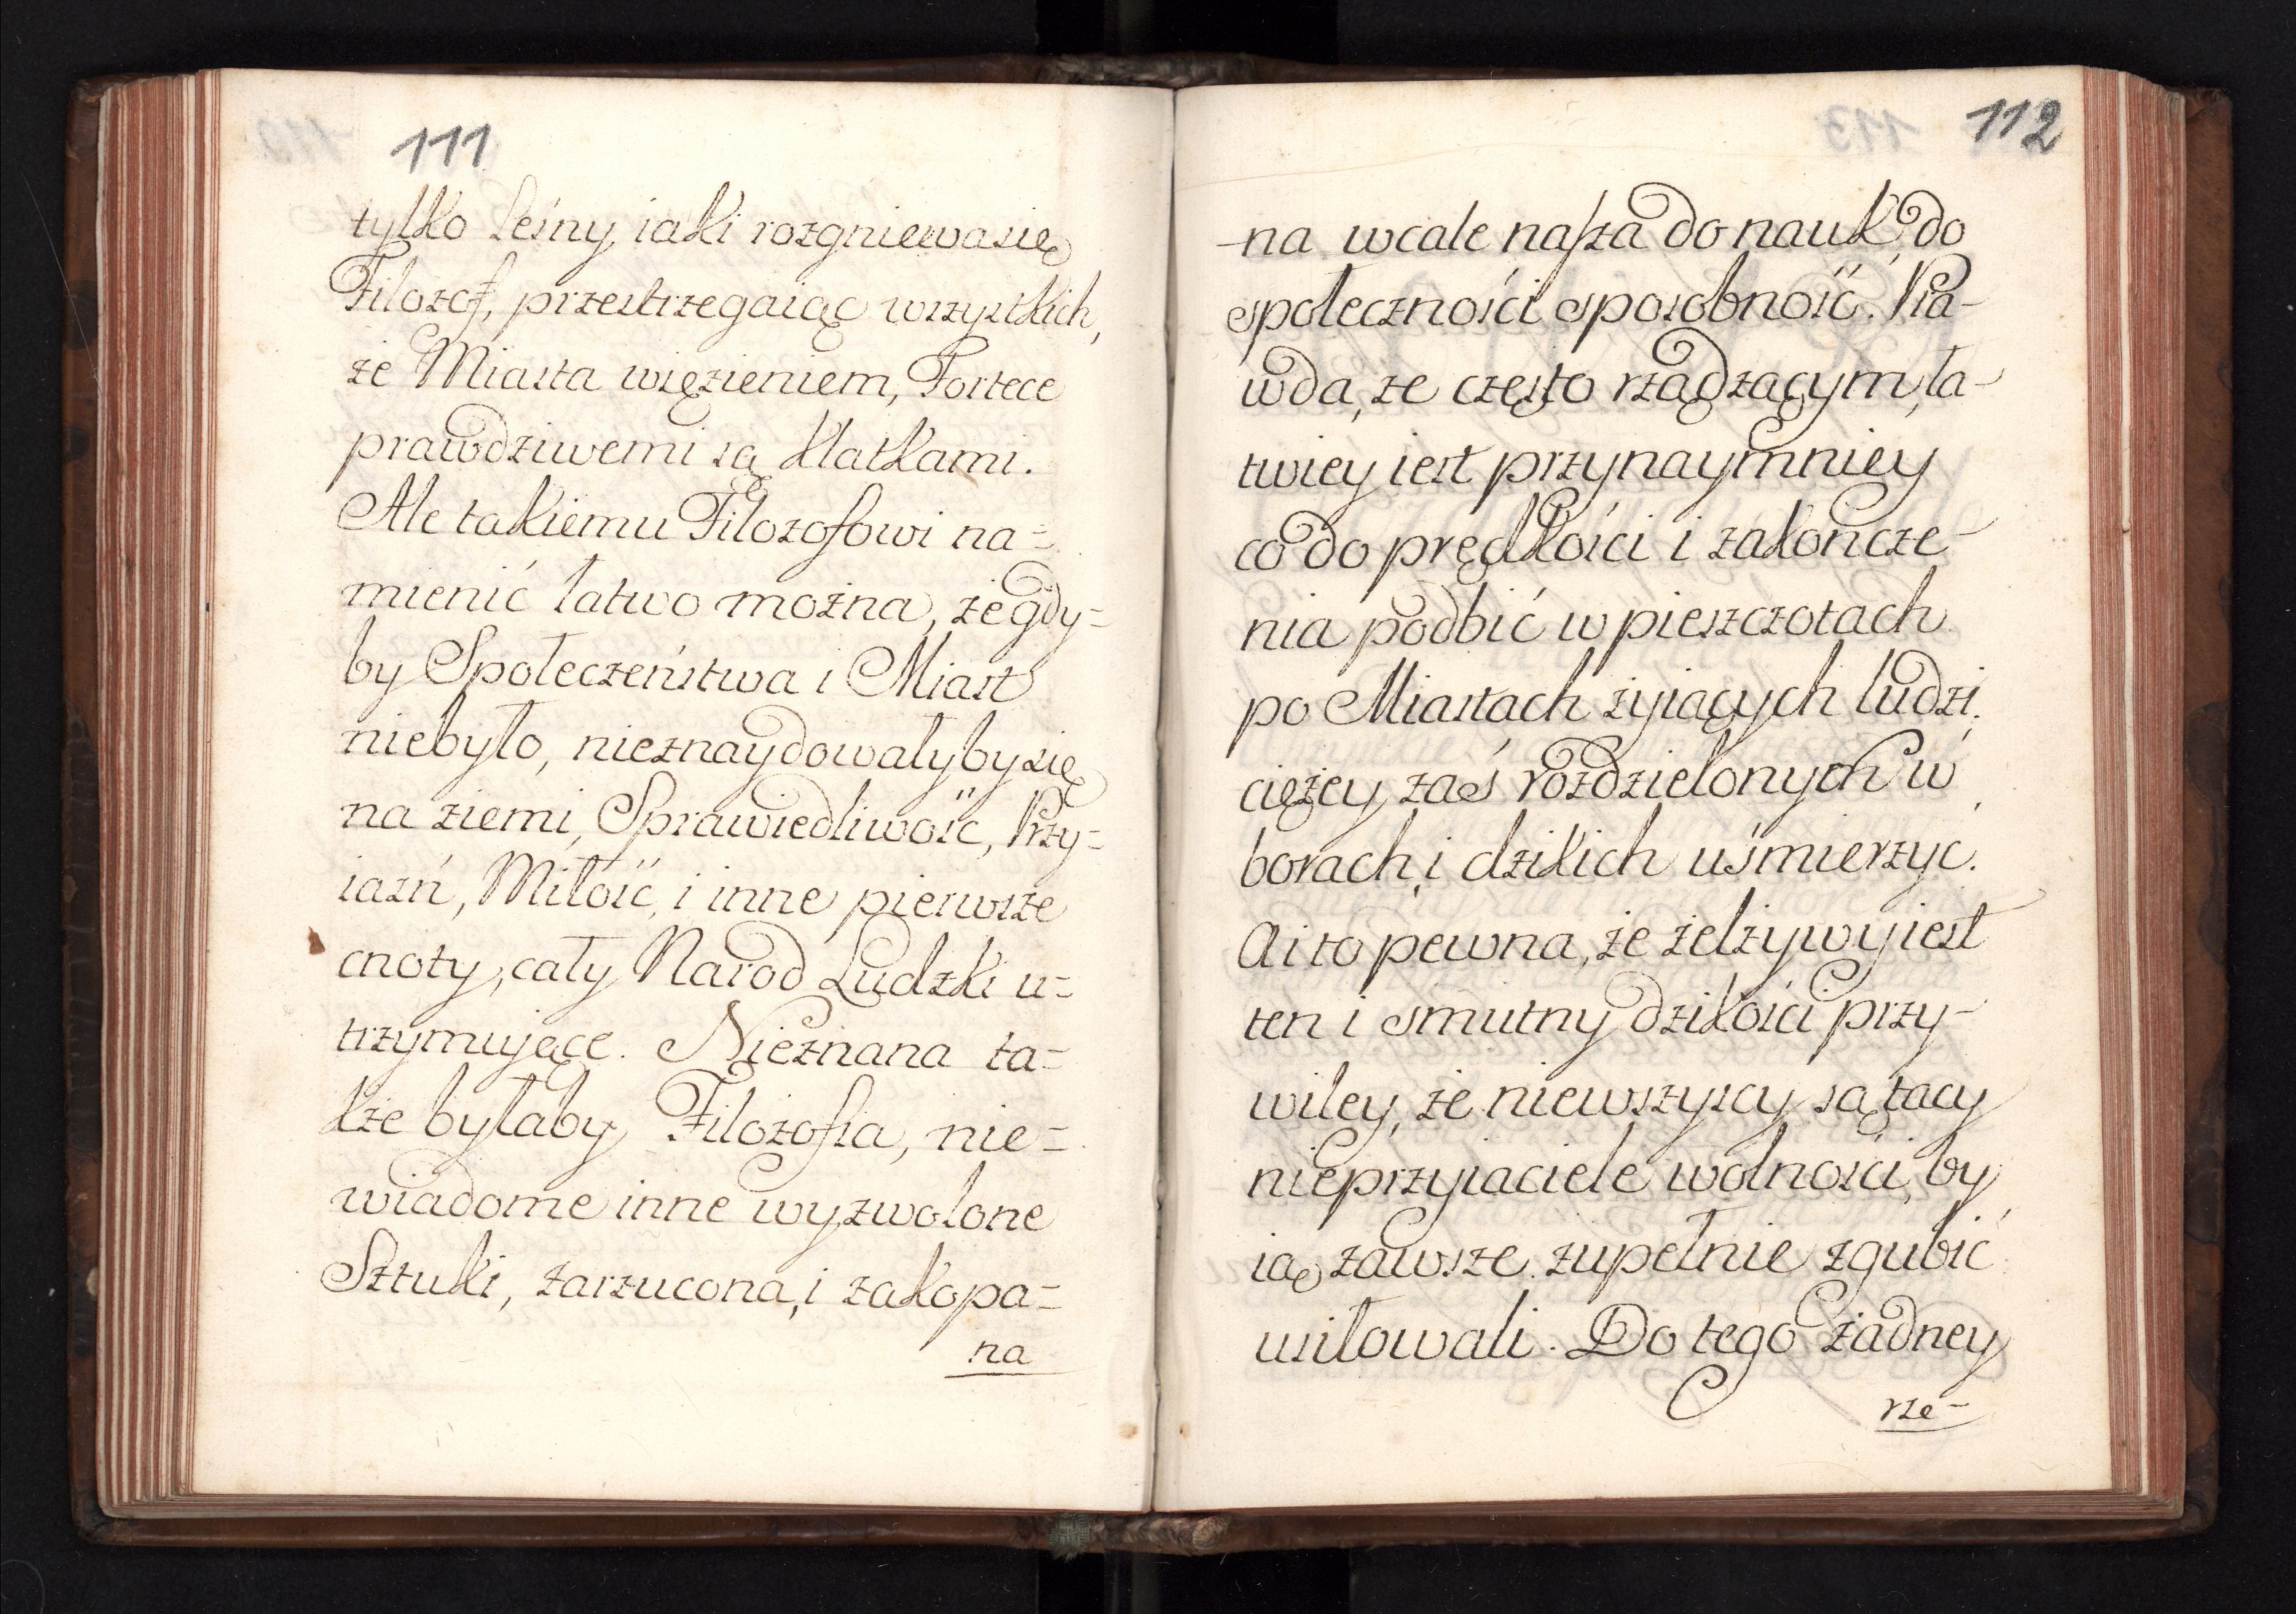 111
tylko leśny iaki rozgniewasię
Filozof, przestrzegaiąc wszystkich,
że Miasta więzieniem, Fortece
prawdziwemi są klatkami.
Ale takiemu Filozofowi na=
mienić łatwo można, że gdy=
by Społeczeństwa i Miast
niebyło, nieznaydowałyby się
na ziemi, Sprawiedliwość, Przy=
iaźń, Miłość, i inne pierwsze
cnoty, cały Narod Ludzki u=
trzymuiące. Nieznana ta=
kże byłaby Filozofia, nie=
wiadome inne wyzwolone
Sztuki, zarzucona, i zakopa=
na
112
-na wcale nasza do nauk, do
społeczności sposobność. Pra-
wda, że często rządzącym, ła-
twiey iest przynaymniey
co do prędkości i zakończe-
nia podbić w pieszczotach
po Miastach żyiących ludzi,
ciężey zaś rozdzielonych w
borach, i dzikich uśmierzyć.
A i to pewna, że żelżywy iest
ten i smutny dzikości przy-
wiley, że niewszyscy są tacy
nieprzyiaciele wolności, by
ią zawsze zupełnie zgubić
usiłowali. Do tego żadney
rze-